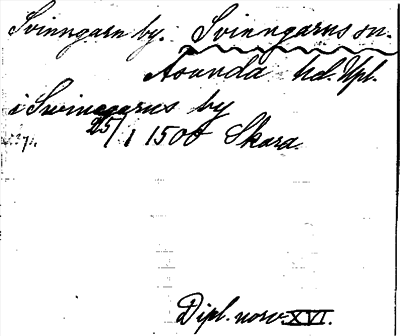 Svinngarn by. Svinngarns sn.
Asunda hd. Upl.
i Swinegarns by
25/1 1500 Skara.
Dipl. norv. XVI.